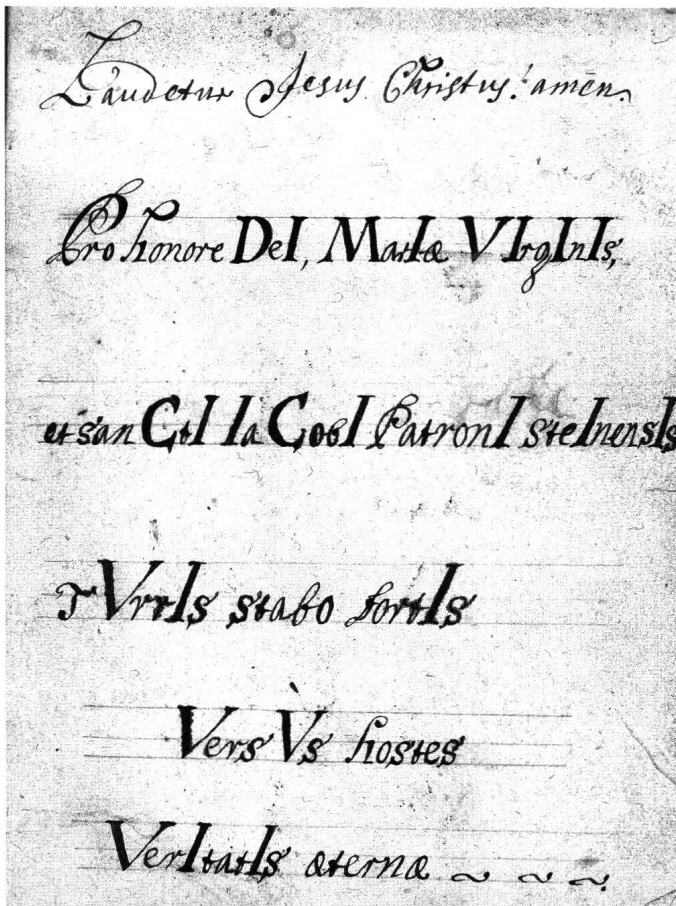 Laudetur Jesus Christus! amen.
Pro honore DeI, MarIæ VIrgInIs,
et sanCtI IaCobI PatronI steInensIs
TVrrIs stabo fortIs
VersVs hostes
VerItatIs æternæ ~ ~ ~.